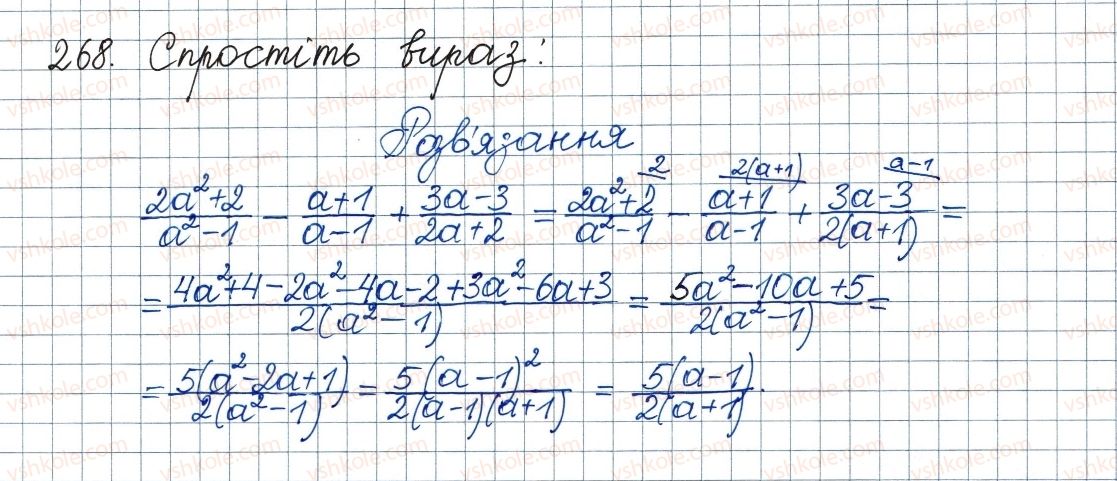 268. Спростіть вираз:
Розв'язання
(2a²+2)/(a²-1) - (a+1)/(a-1) + (3a-3)/(2a+2) = (2a²+2)/(a²-1) ^2 - (a+1)/(a-1) ^2(a+1) + (3a-3)/(2(a+1)) ^a-1 =
= (4a²+4-2a²-4a-2+3a²-6a+3)/(2(a²-1)) = (5a²-10a+5)/(2(a²-1)) =
= (5(a²-2a+1))/(2(a²-1)) = (5(a-1)²)/(2(a-1)(a+1)) = (5(a-1))/(2(a+1)).
vshkole.com